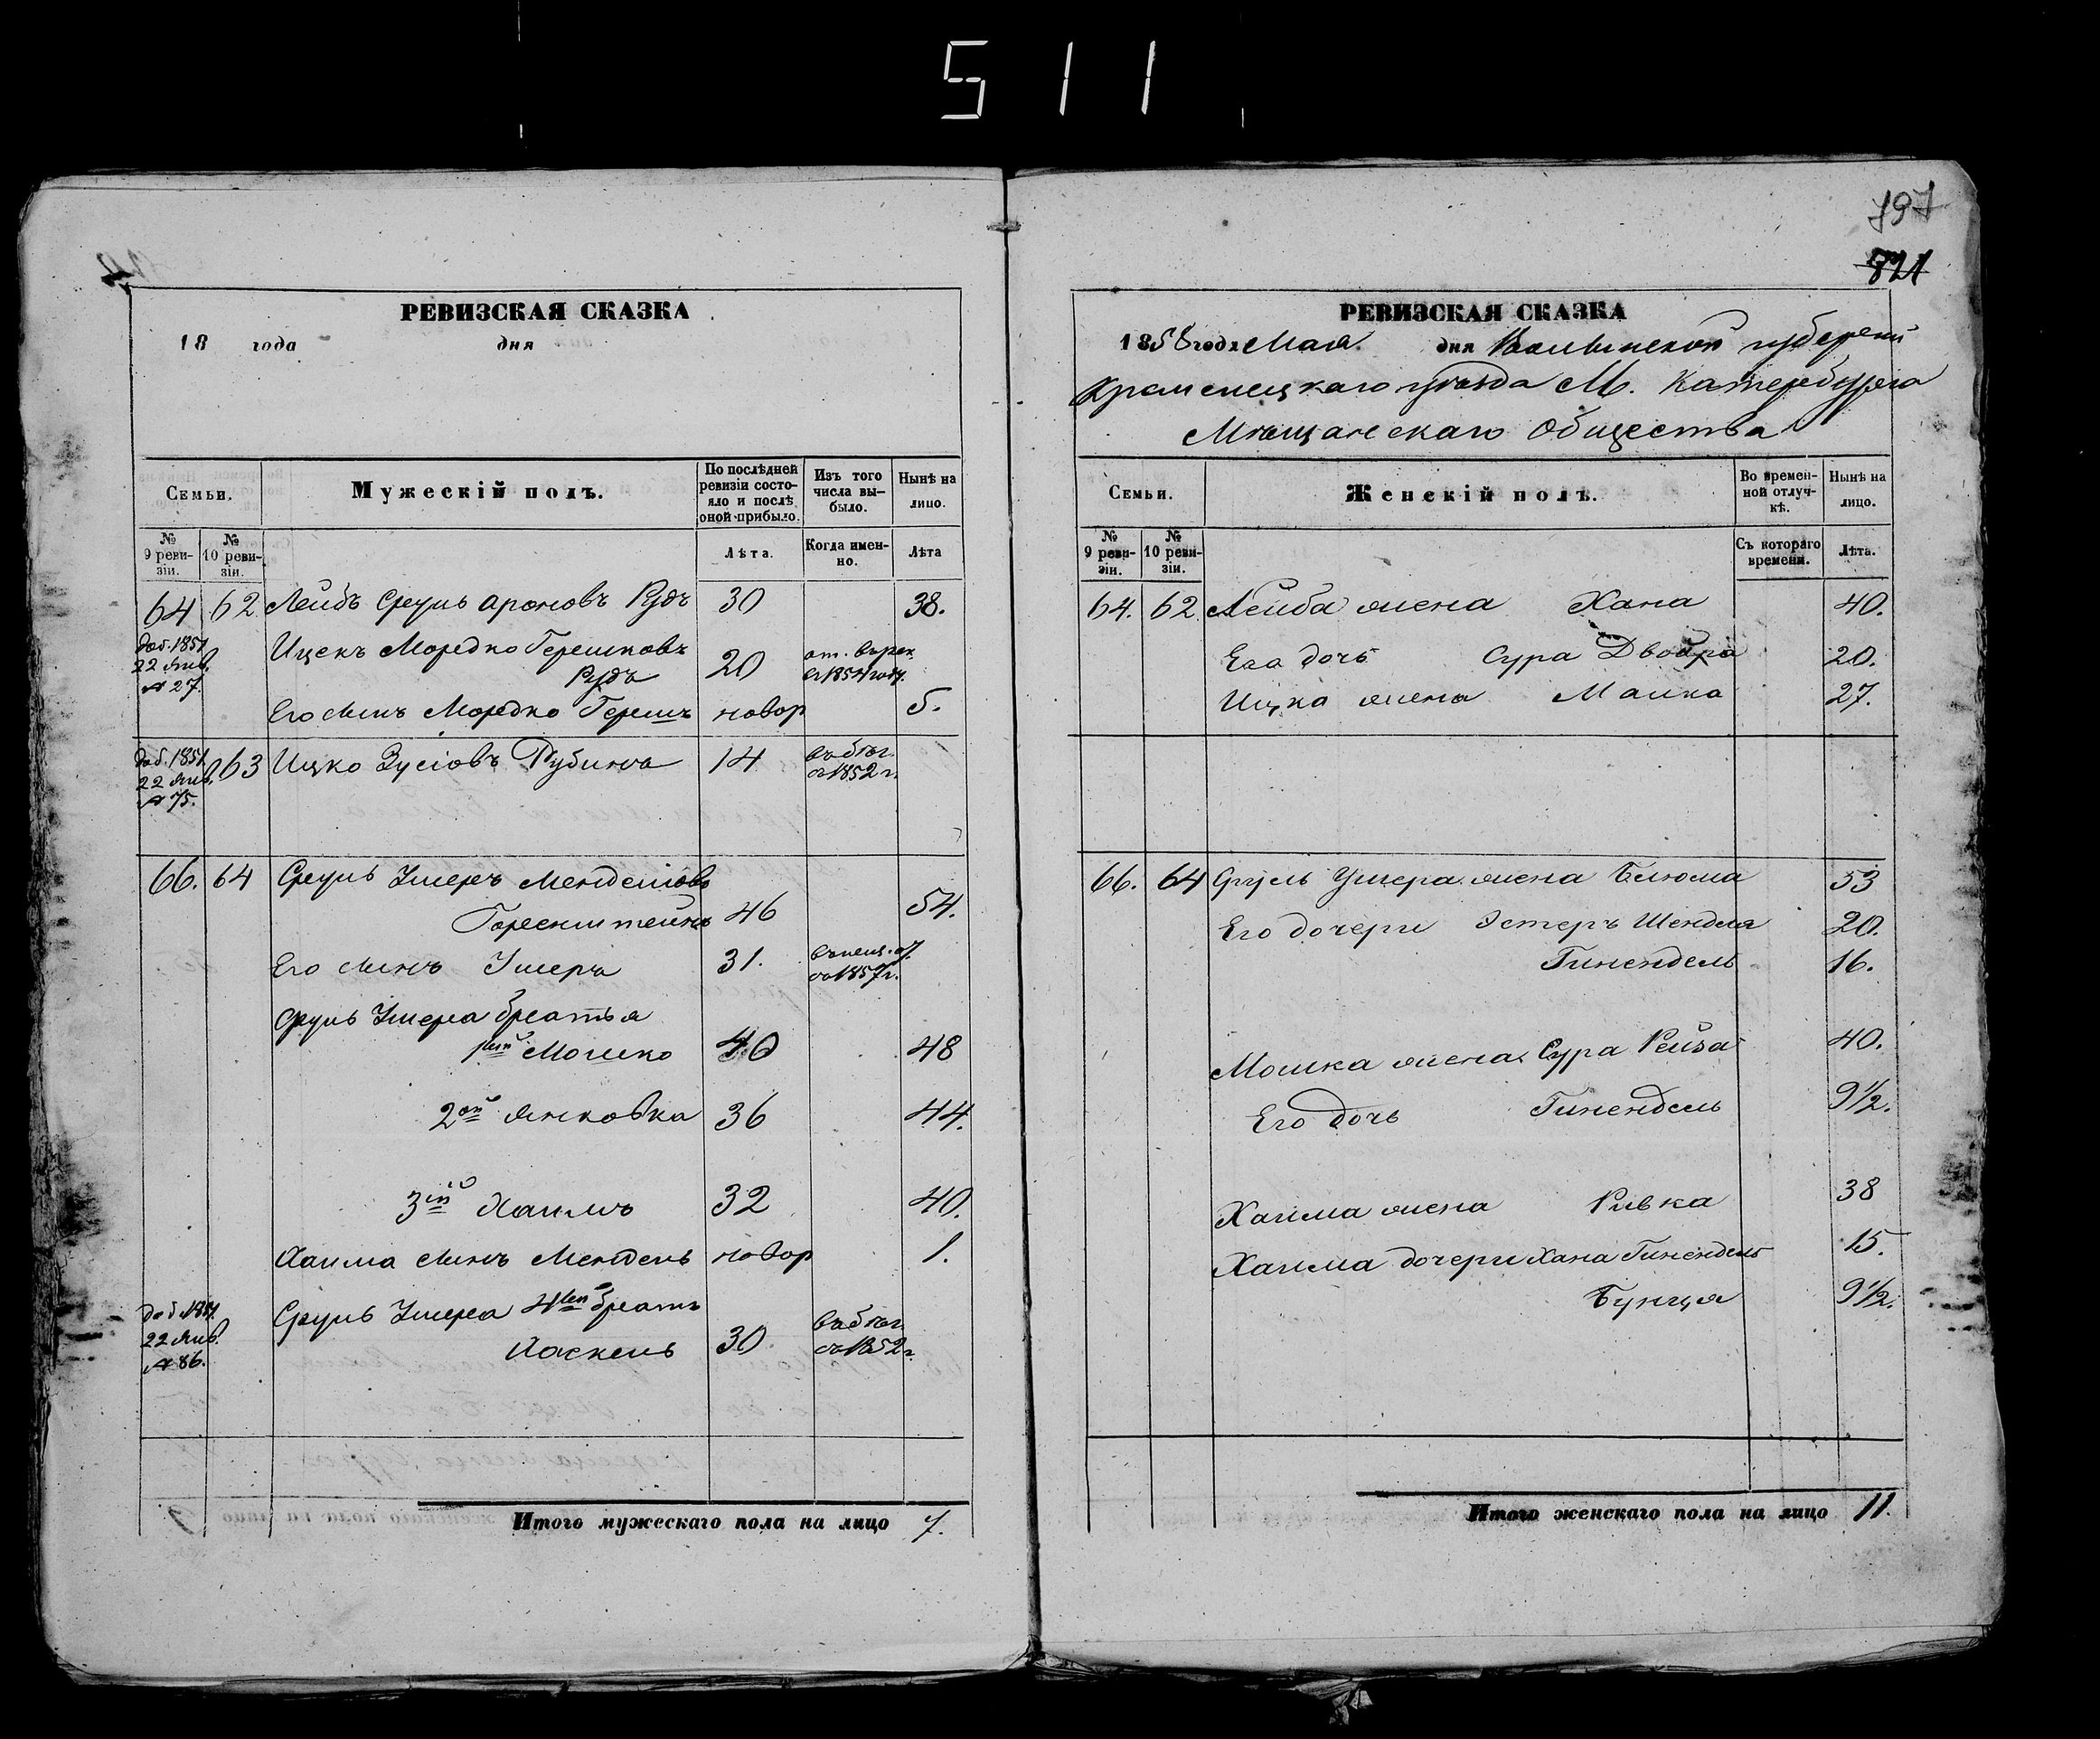 511
РЕВИЗСКАЯ СКАЗКА
18 года дня
Семьи.
Мужескій полъ.
По послѣдней ревизіи состояло и послѣ оной прибыло.
Изъ того числа выбыло.
Нынѣ на лицо.
№ 9 ревизіи.
№ 10 ревизіи.
Лѣта.
Когда именно.
Лѣта
64 62 Лейбъ Сруль Ароновъ Рудъ 30 38.
доб. 1851 22 Янв. № 27.
Ицекъ Мордко Гершковъ
Рудъ 20 1854 году.
Его сынъ Мордко Гершъ новор 5.
доб. 1851 22 Янв. № 75.
63 Ицко Зусіовъ Рубинъ 14 въ бѣг. съ 1852 г.
66. 64 Сруль Умеръ Менделіовъ
46 54.
Его сынъ 31. съ 1857 г.
Сруль братья
1ый Мошко 40 48
2ой Янковка 36 44.
3ій Хаимъ 32 40.
Хаима сынъ Мендель новор 1.
доб. 1851. 22 Янв. № 86.
Сруль 4ый братъ
Хаскель 30 въ бѣг. съ 1852 г.
Итого мужескаго пола на лицо 7.
797
821
РЕВИЗСКАЯ СКАЗКА
1858 года Мая дня Волынской губерніи
Кременецкаго уѣзда М. Катербурга
Мѣщанскаго Общества
Семьи.
Женскій полъ.
Во временной отлучкѣ.
Нынѣ на лицо.
№ 9 ревизіи.
№ 10 ревизіи.
Съ котораго времени.
Лѣта.
64. 62 Лейба жена Хана 40.
Его дочь Сура Двойра 20.
Ицка жена Малка 27.
66. 64 Сруль жена Блюма 53
Его дочери Эстеръ Шендля 20.
Гинендель 16.
Мошка жена Сура Рейза 40.
Его дочь Гинендель 9½.
Хаима жена Ривка 38
Хаима дочери Хана Гинендель 15.
Бунця 9½.
Итого женскаго пола на лицо 11.